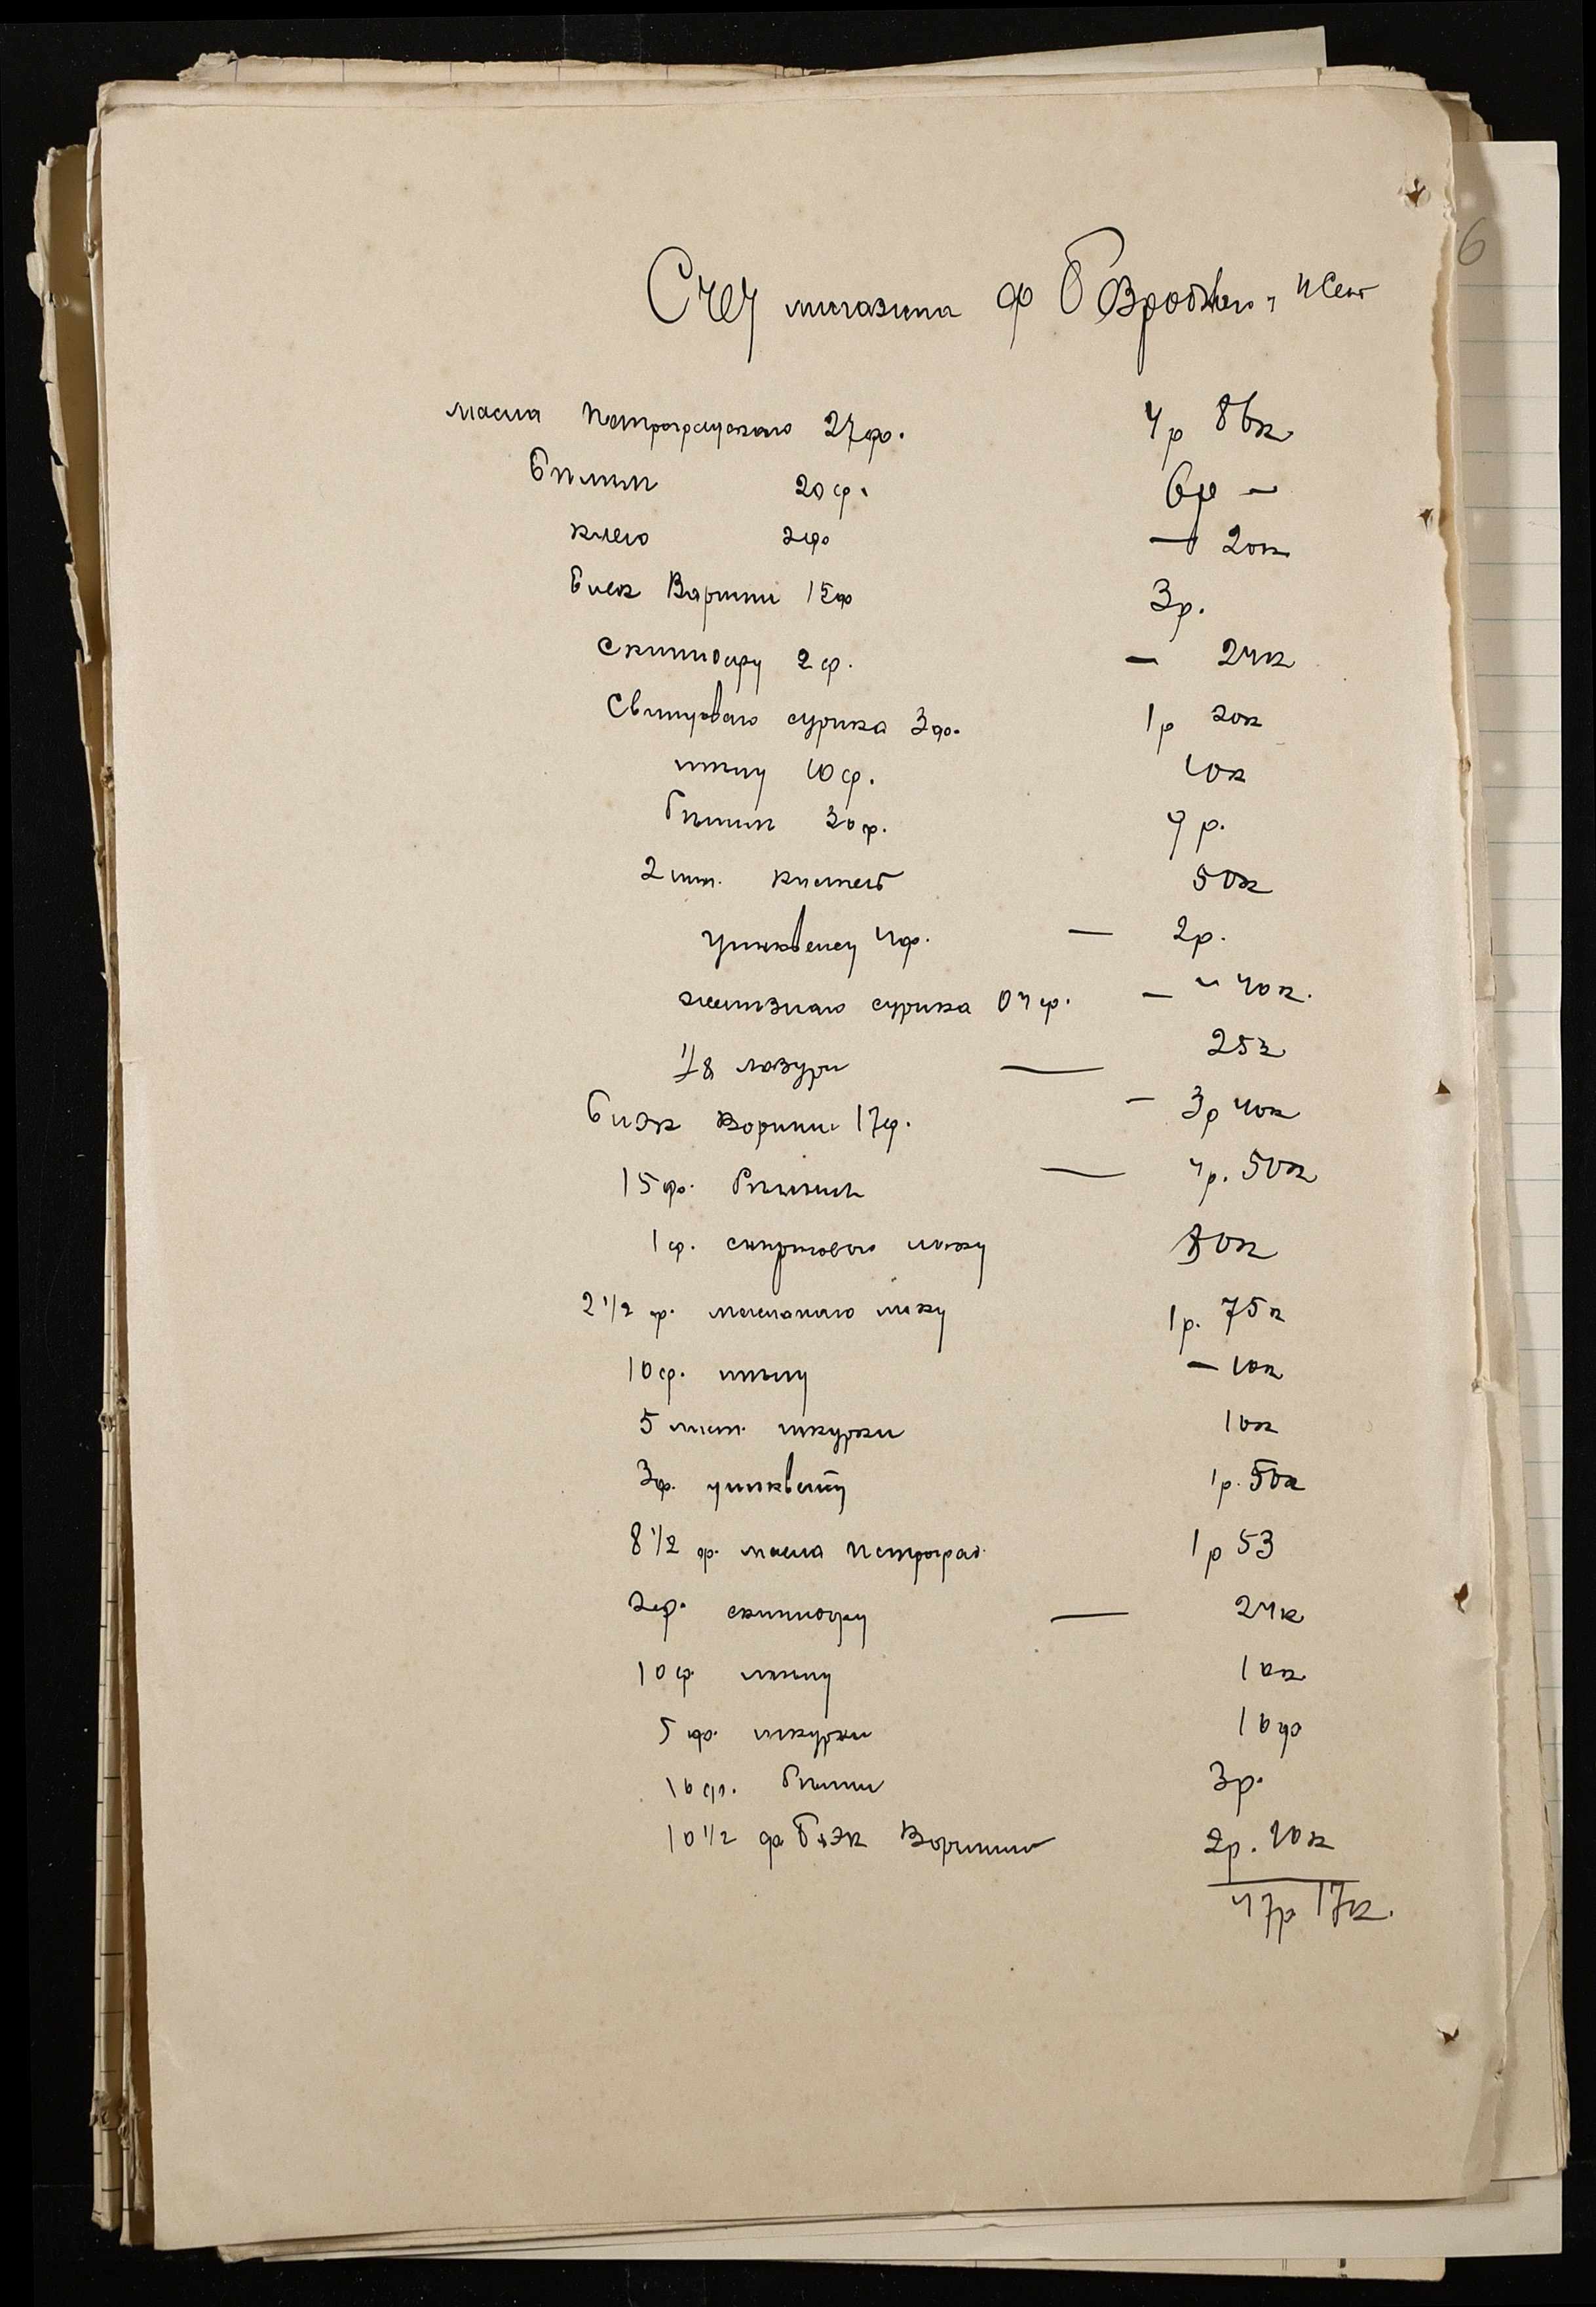 6
Счет магазина ф Б Вродского, и Сент
масла Петроградскаго 27ф. 4р 86к
бѣлил 20ф. 6р —
клею 2ф — 20к
блек Варниш 15ф 3р.
скипидару 2ф. — 24к
Свинцоваго сурика 3ф. 1р 20к
мѣлу 10ф. 10к
бѣлилъ 30ф. 9р.
2 шт. кистей 50к
цинквейсу 4ф. — 2р.
желѣзнаго сурика 04ф. — " 40к.
1/8 лазури — 25к
блэк Ворниш 17ф. — 3р 40к
15ф. бѣлилъ — 4р. 50к
1ф. спиртового лаку 80к
2 1/2 ф. масланаго лаку 1р. 75к
10ф. мѣлу — 10к
5 лист. шкурки 10к
3ф. цинквейсу 1р. 50к
8 1/2 ф. масла петроград. 1р 53
2ф. скипидару — 24к
10ф. мѣлу 10к
5 ф. шкурки 10ф
10ф. бѣлил 3р.
10 1/2 ф блэк Ворниш 2р. 10к
47р 17к.